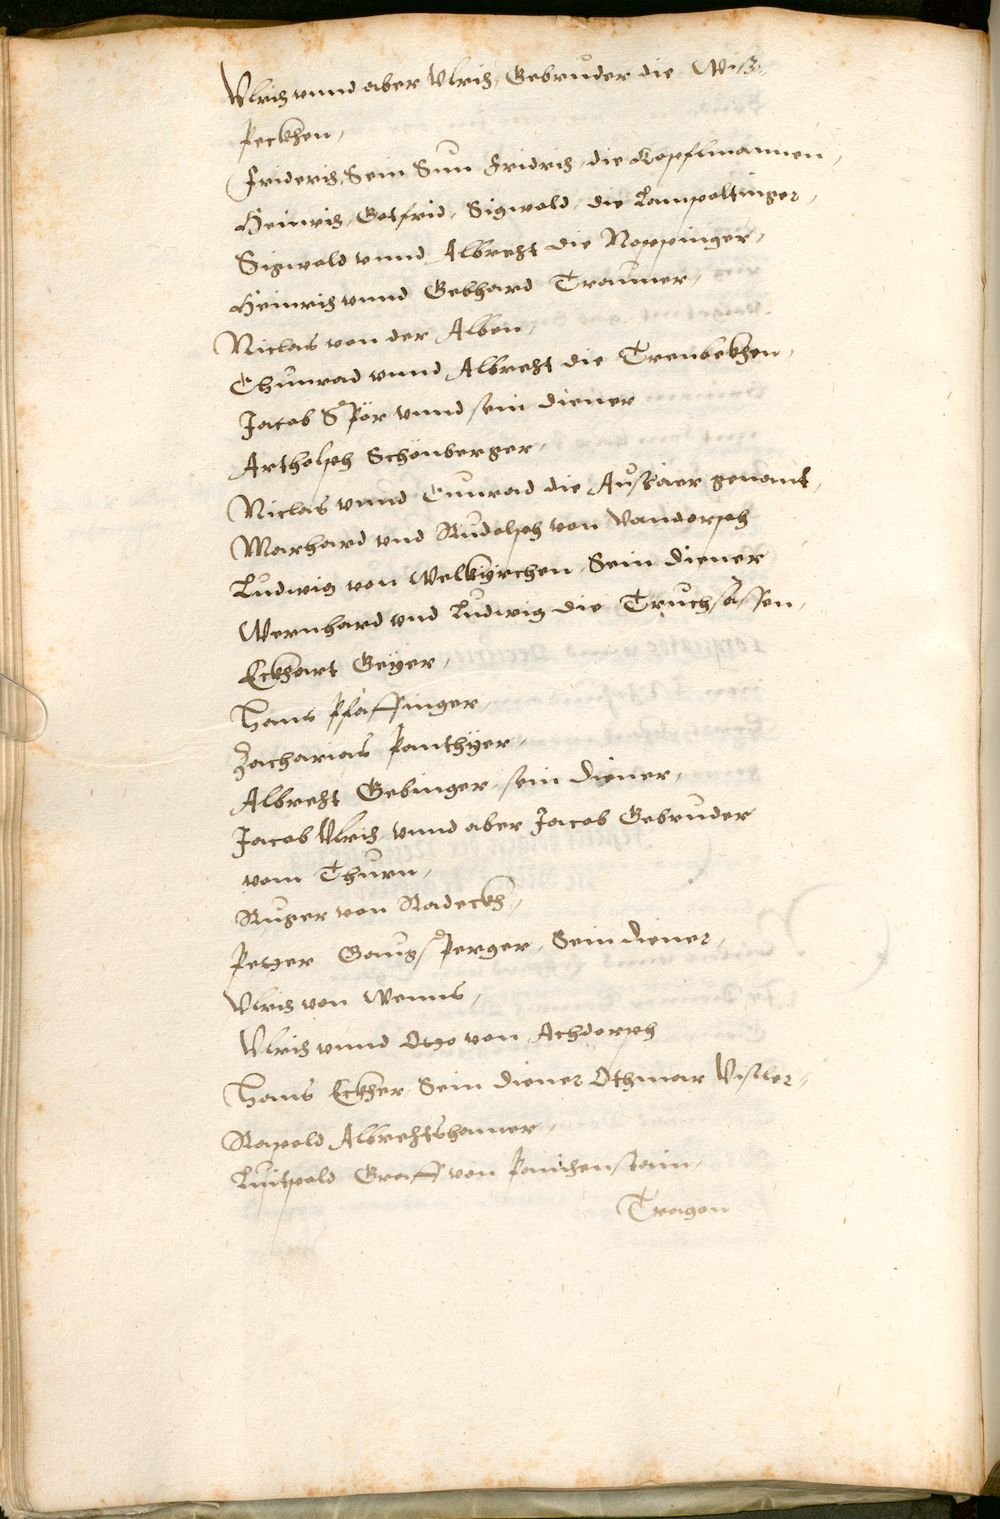 Vlrich vnnd aber Vlrich, Gebruder die Wiß-
peckhen,
Friderich, Sein Sun Fridrich, die Kopfslmannen,
Heinrich, Gotfrid, Sigwald, die Lampoltinger,
Sigwald vnnd Albrecht die Noppinger,
Heinrich vnnd Gebhard Trauner,
Niclas von der Alben,
Chunrad vnnd Albrecht die Trenbekhen,
Jacob Spör vnnd sein diener
Artholph Schönberger,
Niclas vnnd Cunrad die Austaer genant,
Marhard vnd Rudolph von Vandorph
Ludwig von Welkhyrchen, Sein diener
Wernhard vnd Ludwig die Truchsässen,
Eckhart Geyer,
Hans Pfäffinger,
Zacharias Panthyer,
Albrecht Gebinger, sein diener,
Jacob Vlrich, vnnd aber Jacob Gebruder
vom Thurn,
Ruger von Radeckh,
Peter Gaugsperger, Sein diener,
Vlrich von Wenns,
Vlrich vnnd Otto von Achdorph
Hans Eckher, Sein diener Othmar Vistler,
Rapold Albrechtshamer,
Luitpold Graff von
Tragen